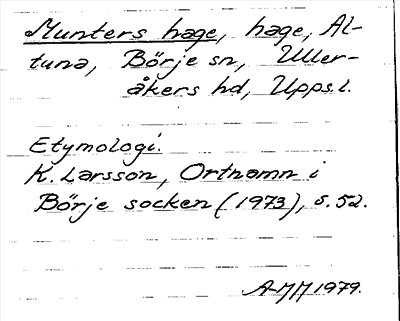 Munters hage, hage, Al-
tuna, Börje sn, Uller-
åkers hd, Upps.l.
Etymologi.
K. Larsson, Ortnamn i
Börje socken (1973), s. 52.
A-MM 1979.